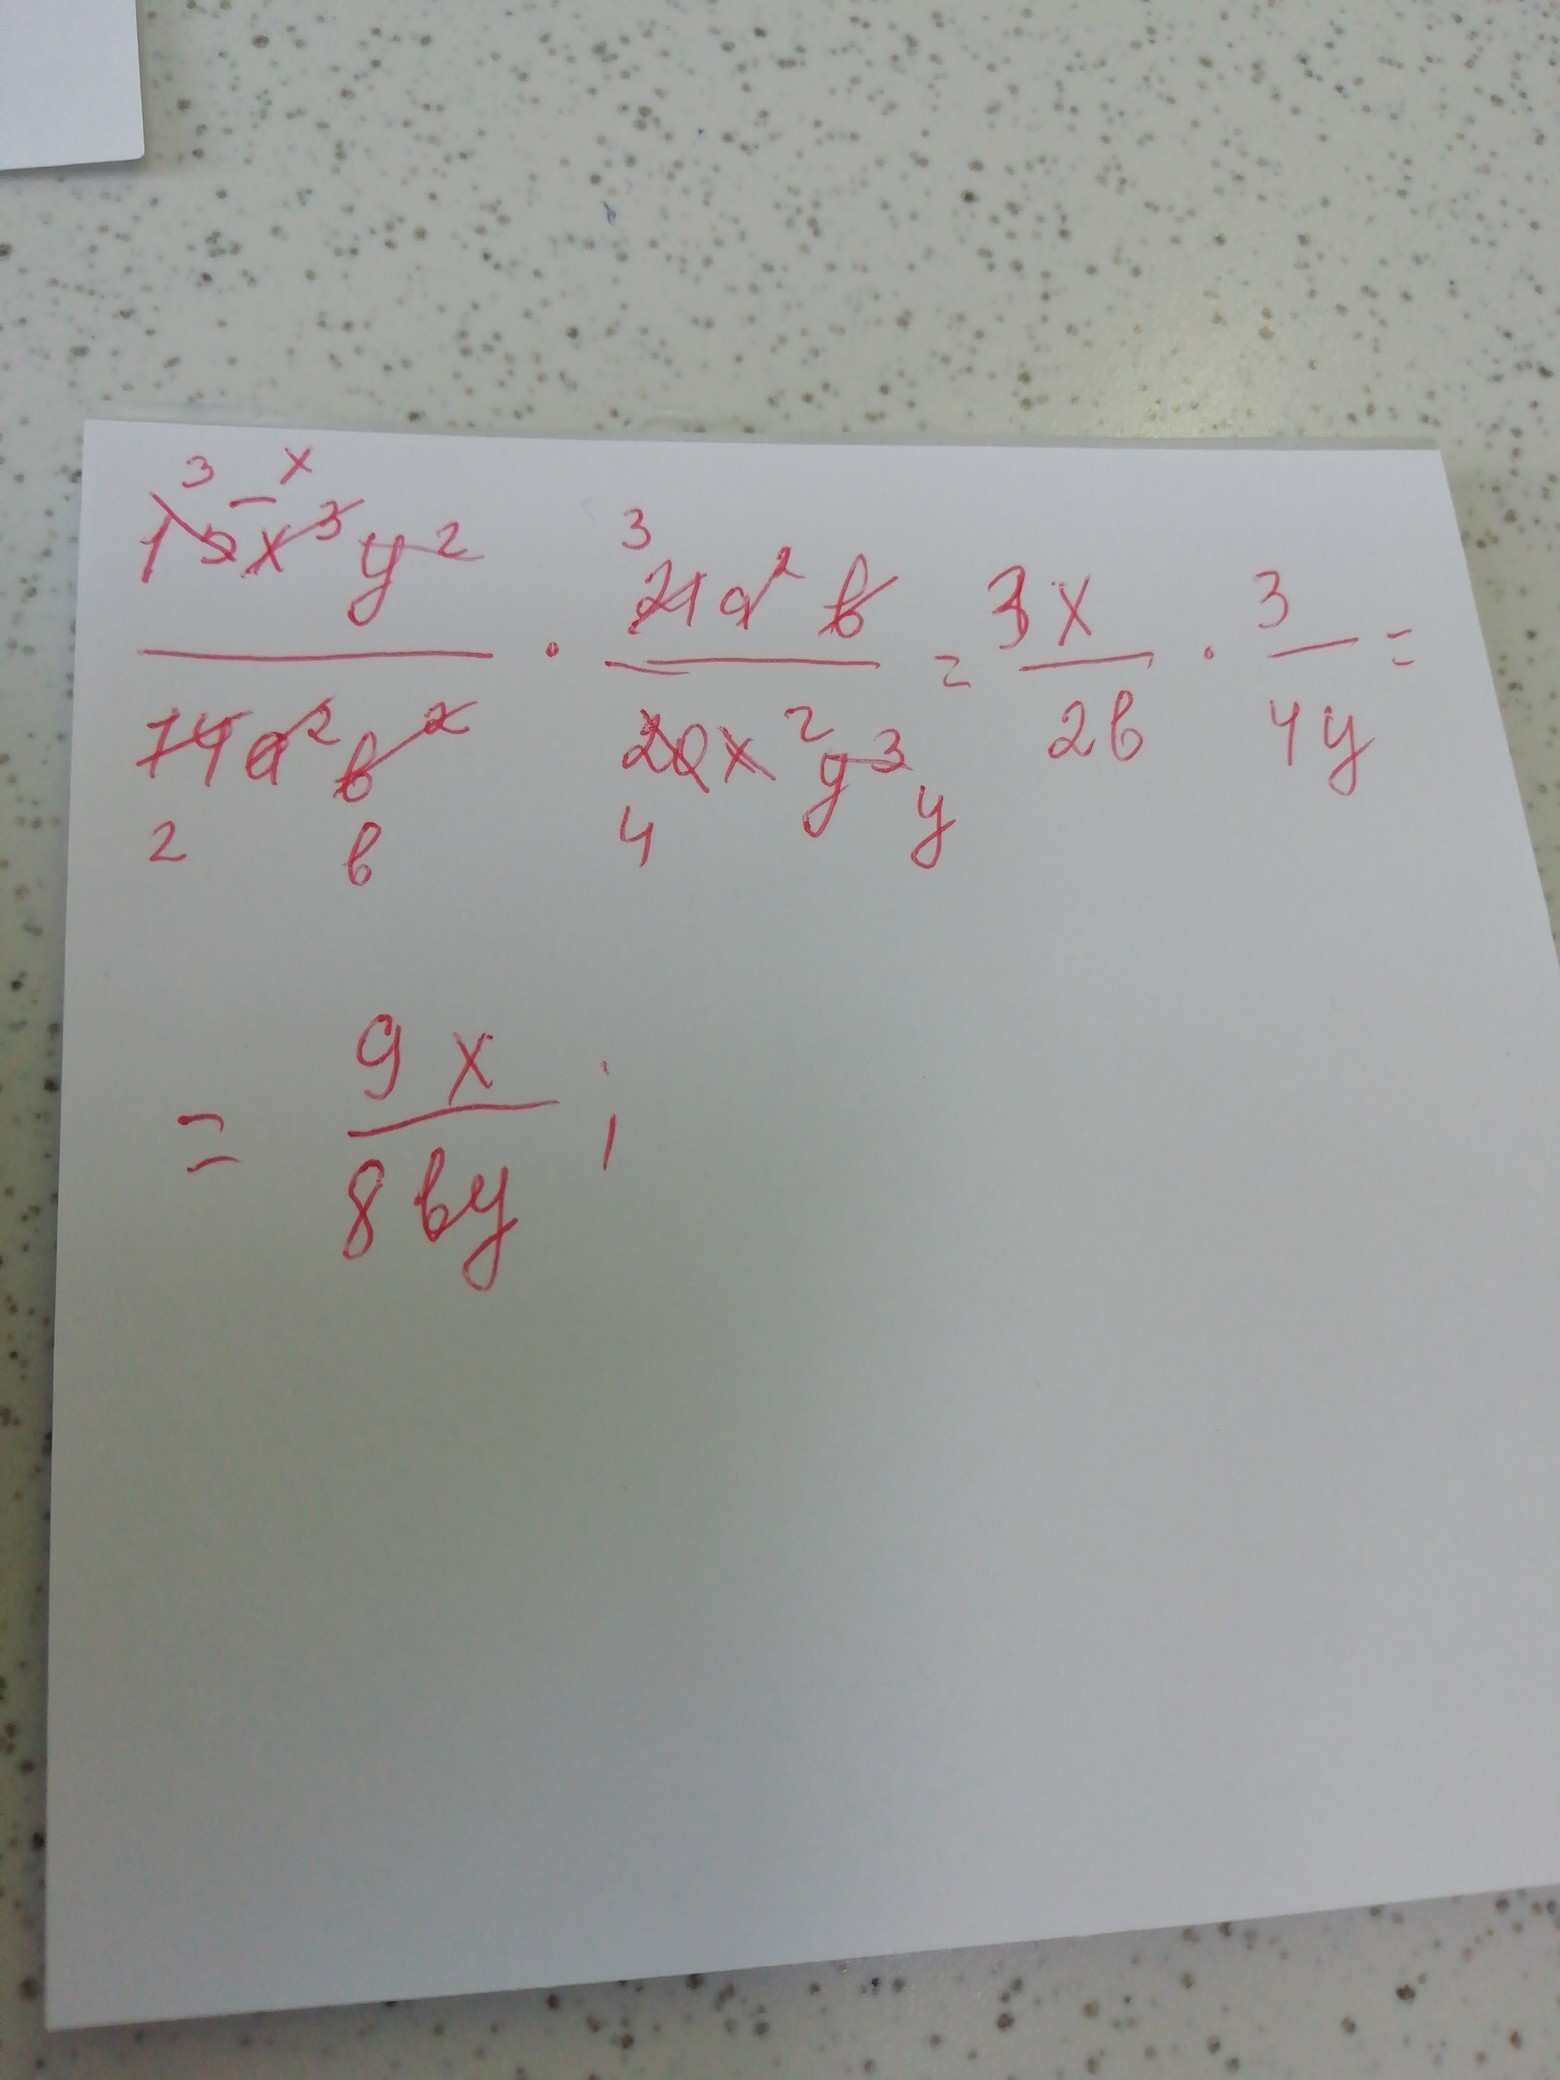 3 x
15x³y² / 14a²b² · 21a²b / 20x²y³ = 3x / 2b · 3 / 4y =
2 b 3 4 y
= 9x / 8by ;